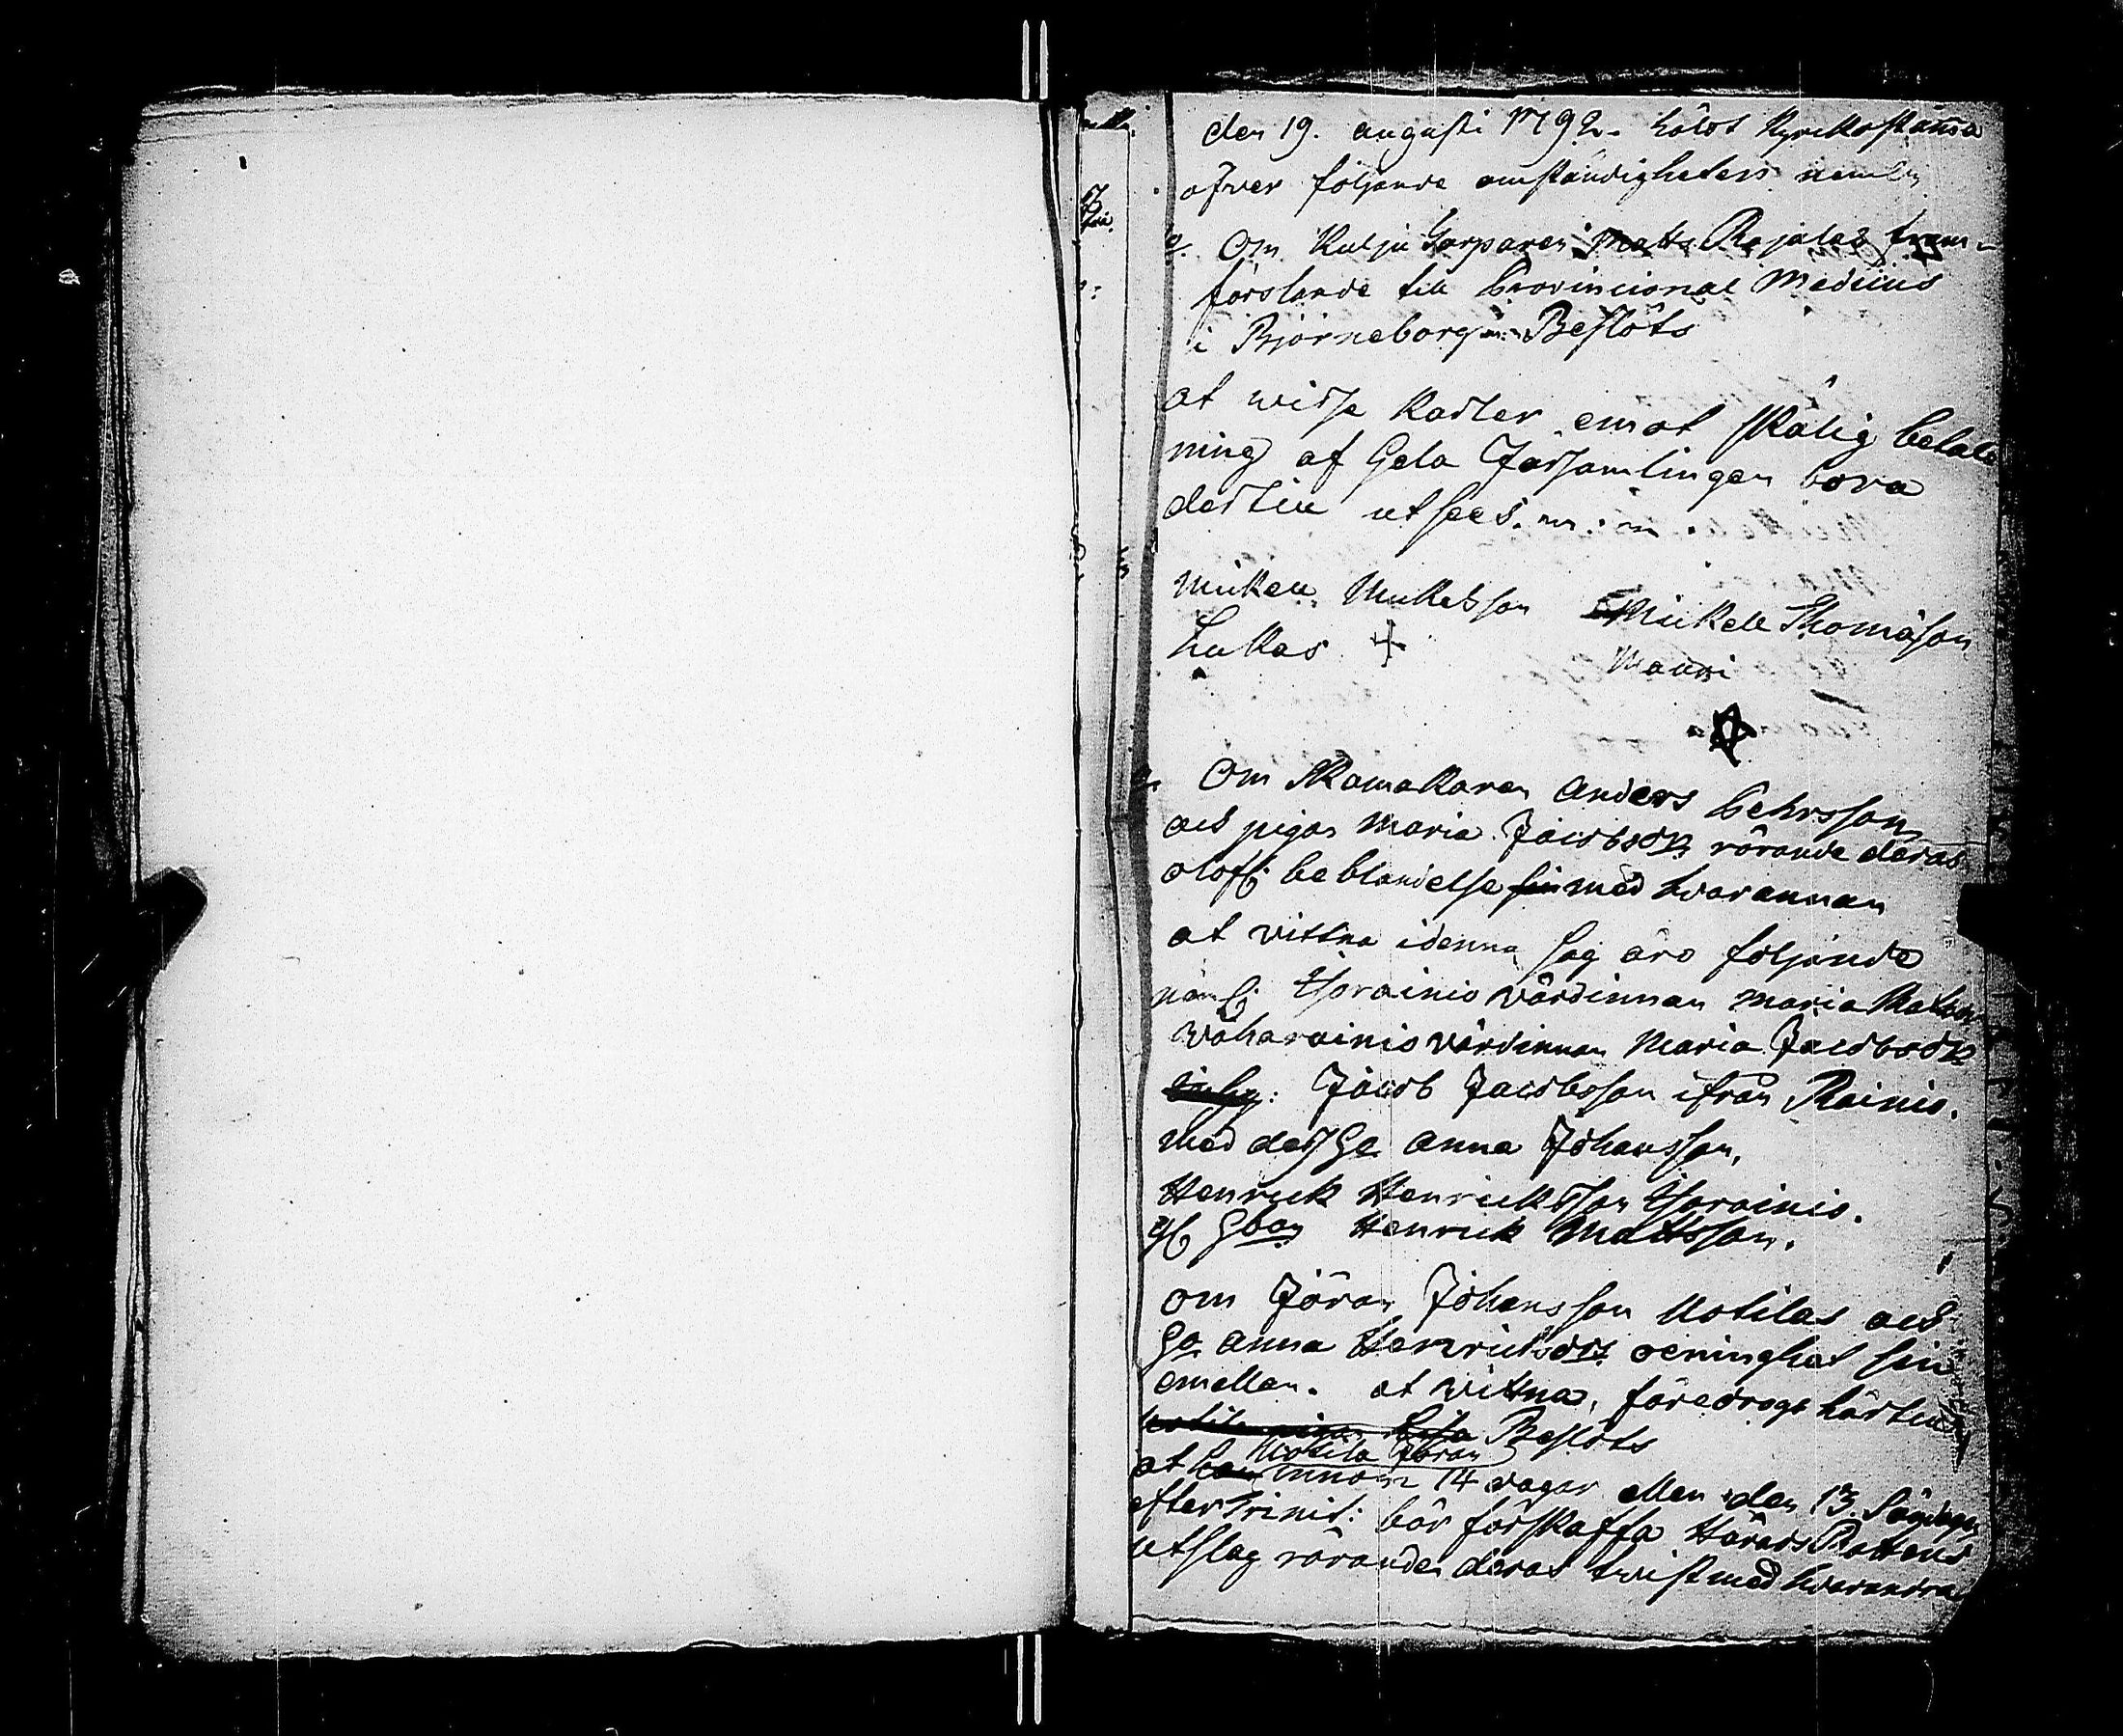 den 19. augusti 1792. håldt Kyrckostäma
öfver följande omständigheters nemln
Om Kulju Torparen Matts Rajalas fram-
förslande till Provincional Medicus
i Björneborg. Beslöts
at wisse Karlar emot skälig betal
ning af Hela Församlingen bora
dertill utsees.
Mickell Mickelsson Mickell Thomasson
Lukas + Mauri
Om Skomakaren Anders Pehrsson
och pigan Maria Jacobsdr rörande deras
olofl: beblandelse med hvarannan
at vittna idenna sag äro följande
näml: Isorainio värdinnan Maria Matsdr
Wäharainio värdinnan Maria Jacobsdr
Jacob Jacobsson ifrån Rainio.
med dess H. Anna Johansson,
Henrick Henricksson Isorainio.
gl. Gbon Henrick Mattsson.
om Jöran Johansson Uotilas och
H. Anna Henricksdr oeninghet sin
emellan. at wittna, föredrogs härtill
Beslöts
Uotila Jöran
at innom 14 dagar eller den 13. Söndagen
efter Trinit: bör förskaffa HäradsRättens
utslag rörande deras twist med hwarandra